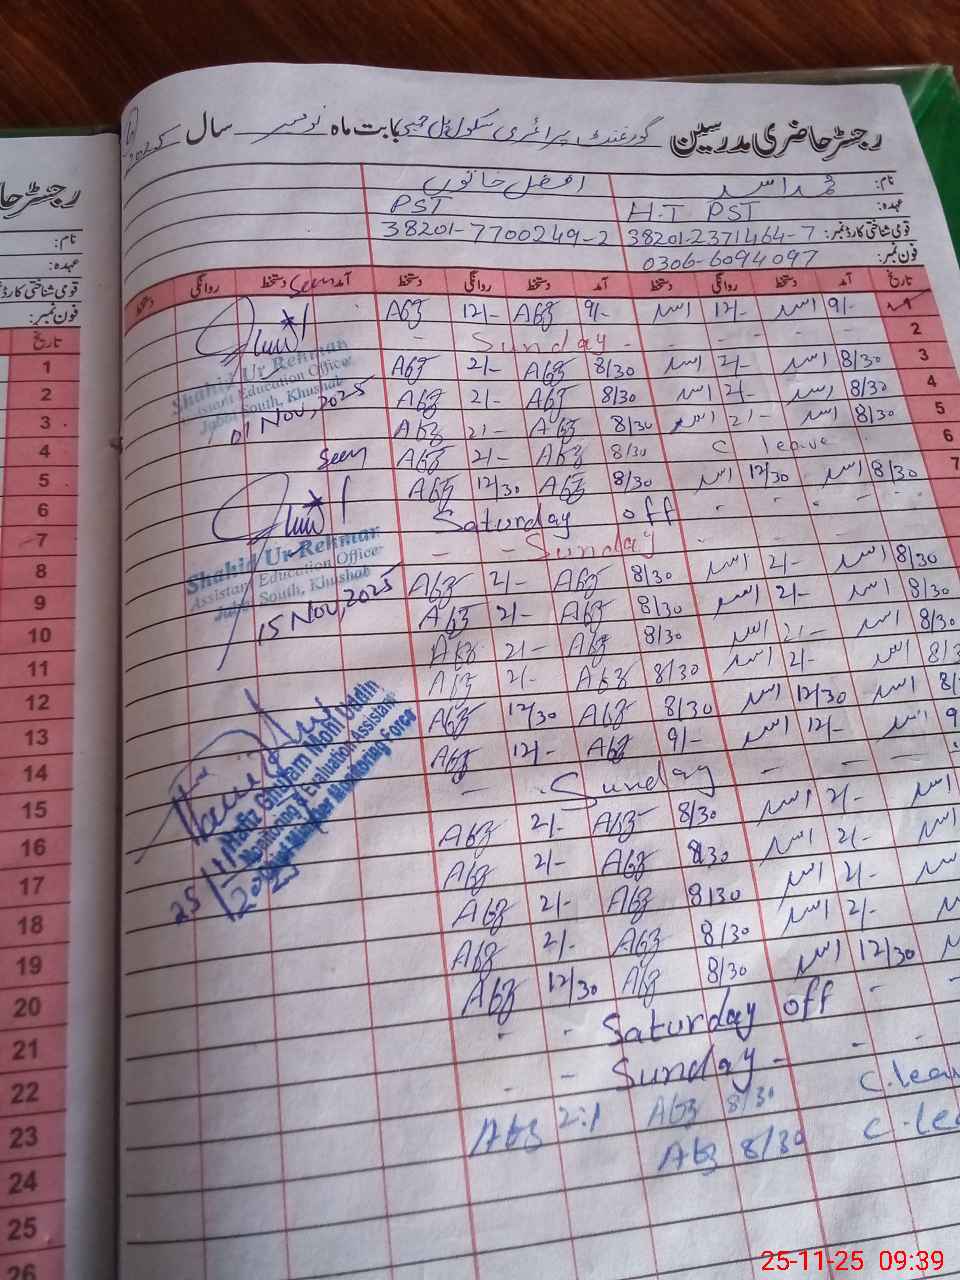 رجسٹر حاضری مدرسین گورنمنٹ پرائمری سکول بابت ماہ نومبر سال 2025
نام: محمد اسد افضل خاتون
عہدہ: H.T PST PST
قومی شناختی کارڈ نمبر: 38201-2371464-7 38201-7700249-2
فون نمبر: 0306-6094097
تاریخ آمد دستخط روانگی دستخط آمد دستخط روانگی دستخط آمد دستخط روانگی دستخط
1 9/- اسد 12/- اسد 9/- 12/-
2 - - - - Sunday -
3 8/30 اسد 2/- اسد 8/30 2/-
4 8/30 اسد 2/- اسد 8/30 2/-
5 8/30 اسد 2/- اسد 8/30 2/-
6 C leave 8/30 2/-
7 8/30 اسد 12/30 اسد 8/30 12/30
Saturday off
- - Sunday - - - -
8/30 اسد 2/- اسد 8/30 2/-
8/30 اسد 2/- اسد 8/30 2/-
8/30 اسد 2/- اسد 8/30 2/-
8/3 اسد 2/- اسد 8/30 2/-
8/ اسد 12/30 اسد 8/30 12/30
9 اسد 12/- اسد 9/- 12/-
- Sunday - - - -
اسد 2/- اسد 8/30 2/-
2/- اسد 8/30 2/-
2/- اسد 8/30 2/-
2/- اسد 8/30 2/-
12/30 اسد 8/30 12/30
- - Saturday off - -
- - Sunday - - -
C.leav 8/30 2:1
C.lea 8/30
Seen
Shahid Ur Rehman
Assistant Education Officer
Jabbi South, Khushab
01 Nov, 2025
Seen
Shahid Ur Rehman
Assistant Education Officer
Jabbi South, Khushab
15 Nov, 2025
Hafiz Ghulam Mohi Uddin
Monitoring & Evaluation Assistant
Chief Minister Monitoring Force
25/11/2025
رجسٹر حا
نام:
عہدہ:
قومی شناختی کارڈ
فون نمبر:
تاریخ
1
2
3
4
5
6
7
8
9
10
11
12
13
14
15
16
17
18
19
20
21
22
23
24
25
26
25-11-25 09:39